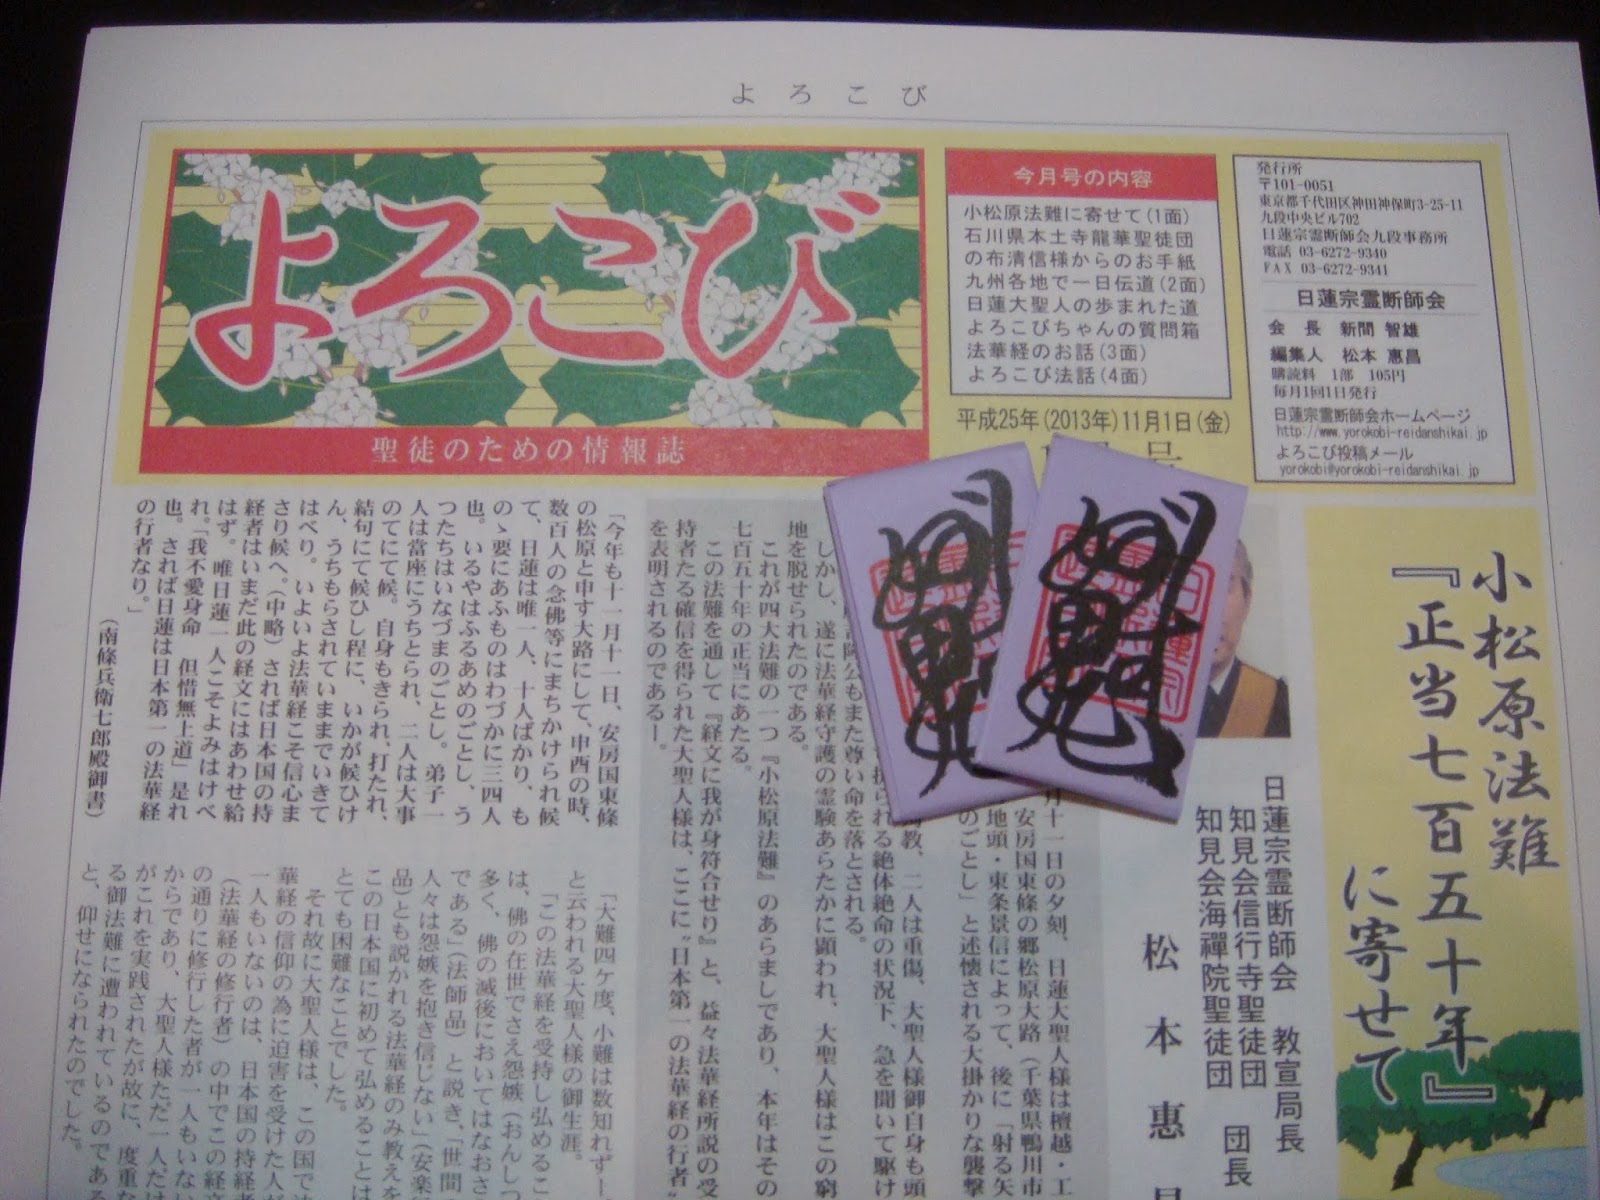 よろこび
よろこび
聖徒のための情報誌
今月号の内容
小松原法難に寄せて(1面)
石川県本土寺龍華聖徒団
の布清信様からのお手紙
九州各地で一日伝道(2面)
日蓮大聖人の歩まれた道
よろこびちゃんの質問箱
法華経のお話(3面)
よろこび法話(4面)
平成25年(2013年)11月1日(金)
号
発行所
〒101-0051
東京都千代田区神田神保町3-25-11
九段中央ビル702
日蓮宗霊断師会九段事務所
電話 03-6272-9340
FAX 03-6272-9341
日蓮宗霊断師会
会 長 新間 智雄
編集人 松本 恵昌
購読料 1部 105円
毎月1回1日発行
日蓮宗霊断師会ホームページ
http://www.yorokobi-reidanshikai.jp
よろこび投稿メール
yorokobi@yorokobi-reidanshikai.jp
小松原法難
『正当七百五十年』
に寄せて
日蓮宗霊断師会 教宣局長
知見会信行寺聖徒団
知見会海禪院聖徒団 団長
松本恵
月十一日の夕刻、日蓮大聖人様は檀越・工
安房国東條の郷松原大路(千葉県鴨川市
地頭・東条景信によって、後に「射る矢
のごとし」と述懐される大掛かりな襲撃
教、二人は重傷、大聖人様御自身も頭
られる絶体絶命の状況下、急を聞いて駆け
公もまた尊い命を落とされる。
しかし、遂に法華経守護の霊験あらたかに顕われ、大聖人様はこの窮
地を脱せられたのである。
これが四大法難の一つ『小松原法難』のあらましであり、本年はその
七百五十年の正当にあたる。
この法難を通して『経文に我が身符合せり』と、益々法華経所説の受
持者たる確信を得られた大聖人様は、ここに“日本第一の法華経の行者”
を表明されるのであるー。
「今年も十一月十一日、安房国東條
の松原と申す大路にして、申酉の時、
数百人の念佛等にまちかけられ候
て、日蓮は唯一人、十人ばかり、も
のゝ要にあふものはわづかに三四人
也。いるやはふるあめのごとし、う
つたちはいなづまのごとし。弟子一
人は當座にうちとられ、二人は大事
のてにて候。自身もきられ、打たれ、
結句にて候ひし程に、いかが候ひけ
ん、うちもらされていままでいきて
はべり。いよいよ法華経こそ信心ま
さり候へ。(中略)されば日本国の持
経者はいまだ此の経文にはあわせ給
はず。唯日蓮一人こそよみはけべ
れ。「我不愛身命 但惜無上道」是れ
也。されば日蓮は日本第一の法華経
の行者なり。」
(南條兵衛七郎殿御書)
「大難四ケ度、小難は数知れず」
と云われる大聖人様の御生涯。
「この法華経を受持し弘めるこ
は、佛の在世でさえ怨嫉(おんしつ
多く、佛の滅後においてはなおさ
である」(法師品)と説き、「世間
人々は怨嫉を抱き信じない」(安楽
品)とも説かれる法華経のみ教えを
この日本国に初めて弘めることは
とても困難なことでした。
それ故に大聖人様は、この国で法
華経の信仰の為に迫害を受けた人が
一人もいないのは、日本国の持経者
(法華経の修行者)の中でこの経文
の通りに修行した者が一人もいない
からであり、大聖人様ただ一人だけ
がこれを実践されたが故に、度重な
る御法難に遭われているのである
と、仰せになられたのでした。